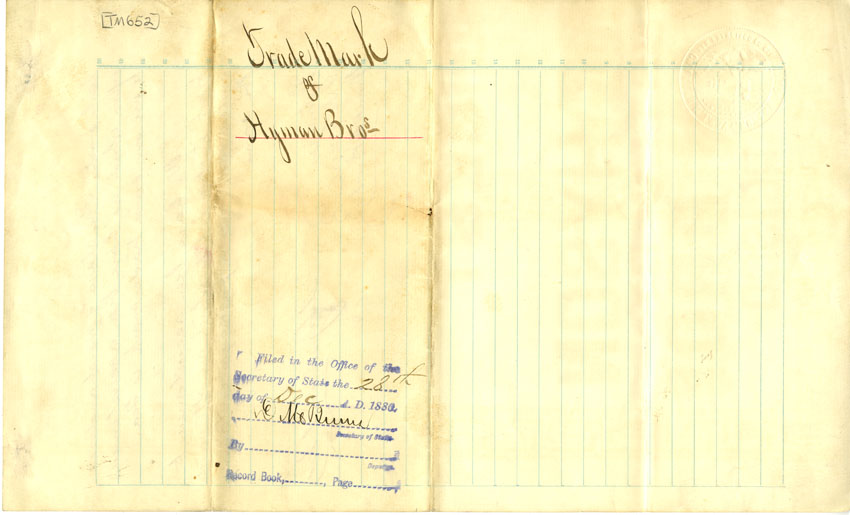 [TM652]
Trade Mark
of
Hyman Bros
Filed in the Office of the
Secretary of State the 28th
day of Dec A. D. 1880,
Secretary of State.
By
Deputy.
Record Book, , Page